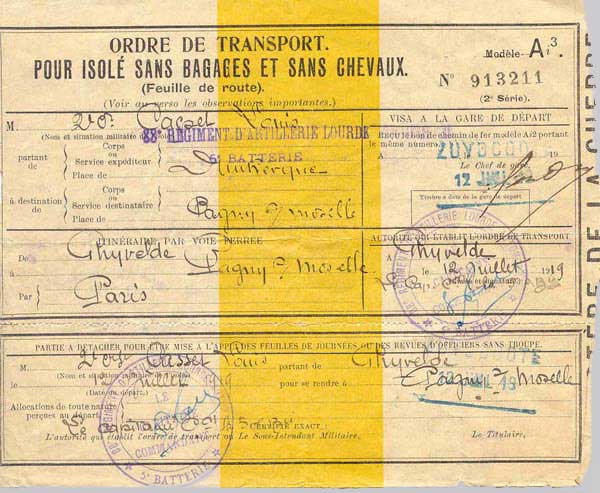 ORDRE DE TRANSPORT.
POUR ISOLÉ SANS BAGAGES ET SANS CHEVAUX.
(Feuille de route).
(Voir au verso les observations importantes.)
Modèle A i³.
N° 913211
(2e Série).
M. Casset Louis
(Nom et situation militaire
88e REGIMENT D'ARTILLERIE LOURDE
5e BATTERIE
partant de
Corps ou Service expéditeur
Place de Dunkerque
à destination de
Corps ou Service destinataire
Place de Pagny s/ Moselle
VISA A LA GARE DE DÉPART
REÇU le bon de chemin de fer modèle A i2 portant
le même numéro.
ZUYDCOO 19
Le Chef de gare,
12 JUIL
Timbre à date de la gare de départ
ITINÉRAIRE PAR VOIE FERRÉE
De Ghyvelde à Pagny s/ Moselle
Par Paris
AUTORITÉ QUI ÉTABLIT L'ORDRE DE TRANSPORT
A Ghyvelde
le 12 Juillet 1919
5e BATTERIE
PARTIE A DÉTACHER POUR ÊTRE MISE A L'APPUI DES FEUILLES DE JOURNÉES OU DES REVUES D'OFFICIERS SANS TROUPE.
M. Casset Louis partant de Ghyvelde
(Nom et situation militaire
le Juillet 1919 pour se rendre à Pagny s/ Moselle
(Date du départ.)
12 JUIL 19
Allocations de toute nature
perçues au départ
Le Capitaine
CERTIFIÉ EXACT :
L'autorité qui établit l'ordre de transport ou Le Sous-Intendant Militaire,
Le Titulaire,
COMMANDANT
5e BATTERIE
DE LA GUERRE